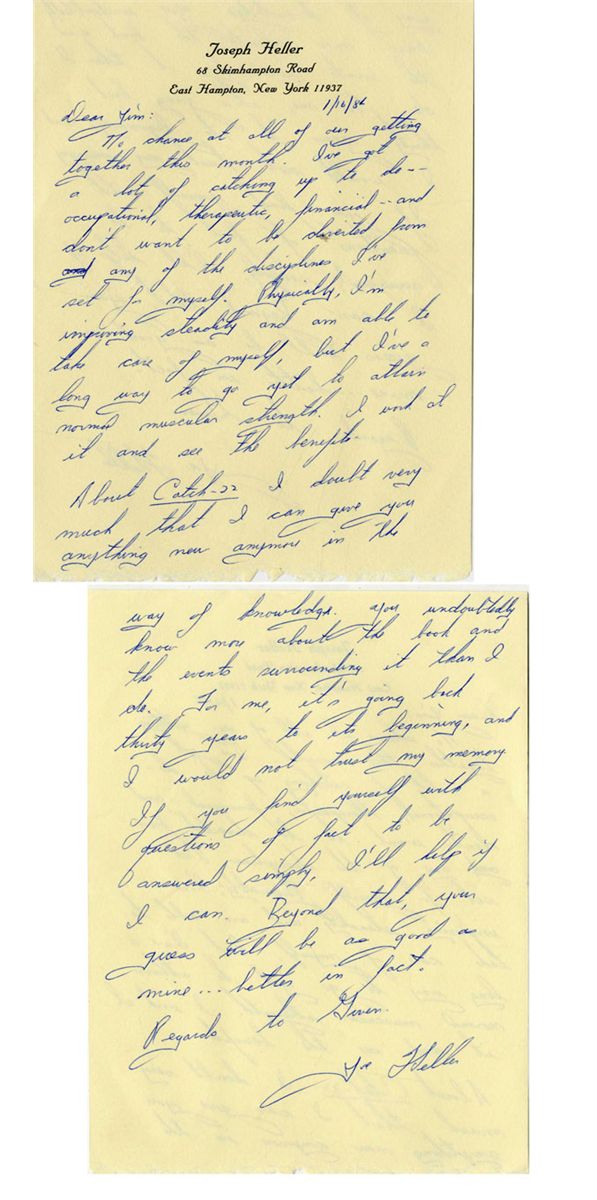 Joseph Heller
68 Skimhampton Road
East Hampton, New York 11937
1/16/84
Dear Jim:
No chance at all of our getting
together this month. I've got
a lots of catching up to do--
occupational, therapeutic, financial--and
don't want to be diverted from
and any of the disciplines I've
set for myself. Physically, I'm
improving steadily and am able to
take care of myself, but I've a
long way to go yet to attain
normal muscular strength. I work at
it and see the benefits.
About Catch-22 I doubt very
much that I can give you
anything new anymore in the
way of knowledge. You undoubtedly
know more about the book and
the events surrounding it than I
do. For me, it's going back
thirty years to its beginning, and
I would not trust my memory.
If you find yourself with
questions of fact to be
answered simply, I'll help if
I can. Beyond that, your
guess will be as good as
mine... better in fact.
Regards to Gwen.
Joe Heller